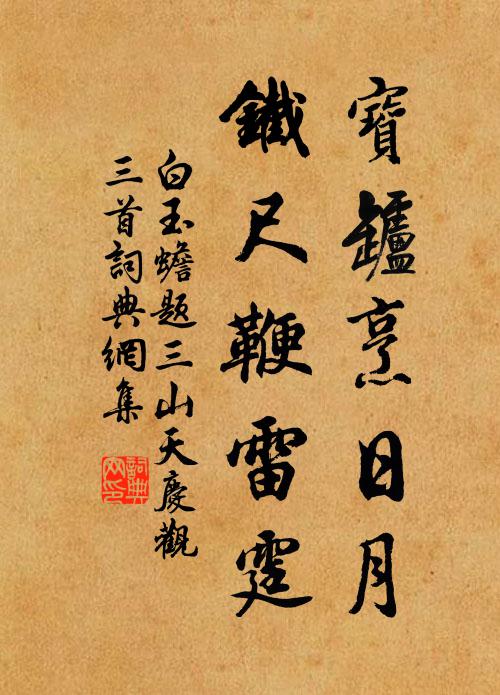 寶鑪烹日月
鐵尺鞭雷霆
白玉蟾題三山天慶觀
三首詞典網集
詞典
网印